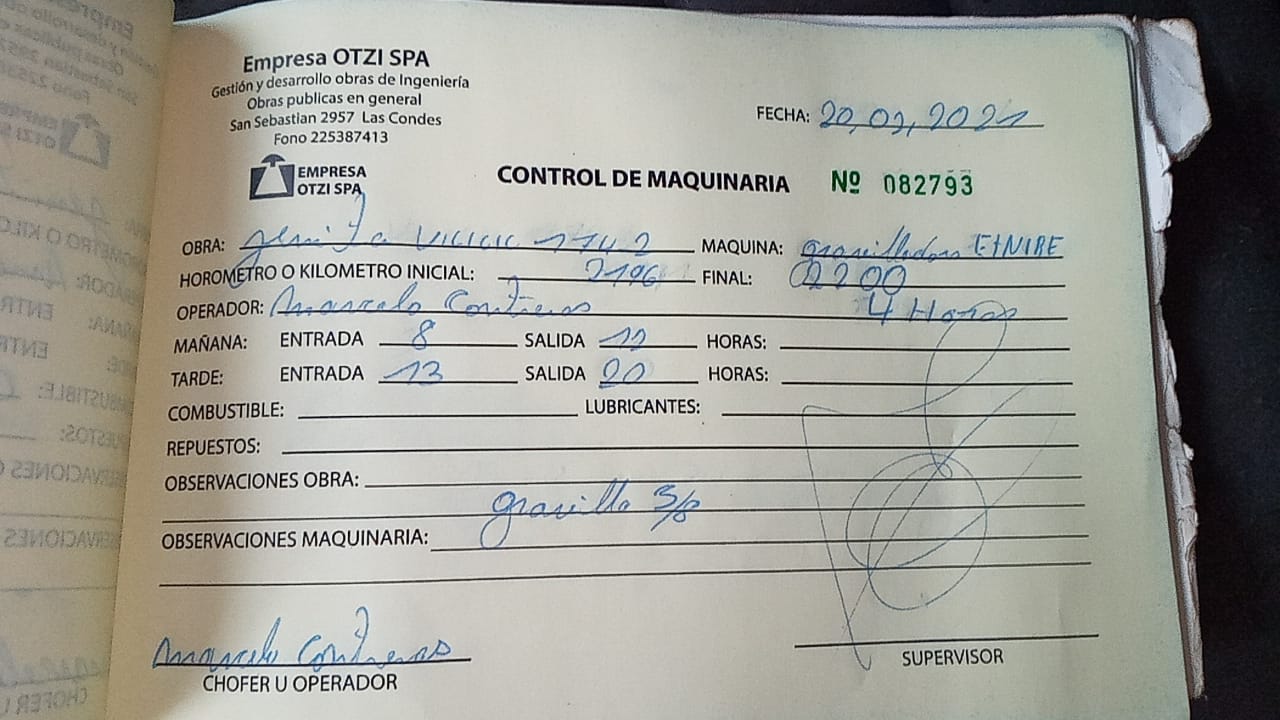 Empresa OTZI SPA
Gestión y desarrollo obras de Ingeniería
Obras publicas en general
San Sebastian 2957 Las Condes
Fono 225387413
FECHA: 20,02,2021
EMPRESA
OTZI SPA
CONTROL DE MAQUINARIA Nº 082793
OBRA: MAQUINA: gravilladora
HOROMETRO O KILOMETRO INICIAL: 2196 FINAL: 2200
OPERADOR: Marcelo Contreras 4 Horas
MAÑANA: ENTRADA 8 SALIDA 12 HORAS:
TARDE: ENTRADA 13 SALIDA 20 HORAS:
COMBUSTIBLE: LUBRICANTES:
REPUESTOS:
OBSERVACIONES OBRA:
gravilla 3/8
OBSERVACIONES MAQUINARIA:
Marcelo Contreras
CHOFER U OPERADOR
SUPERVISOR